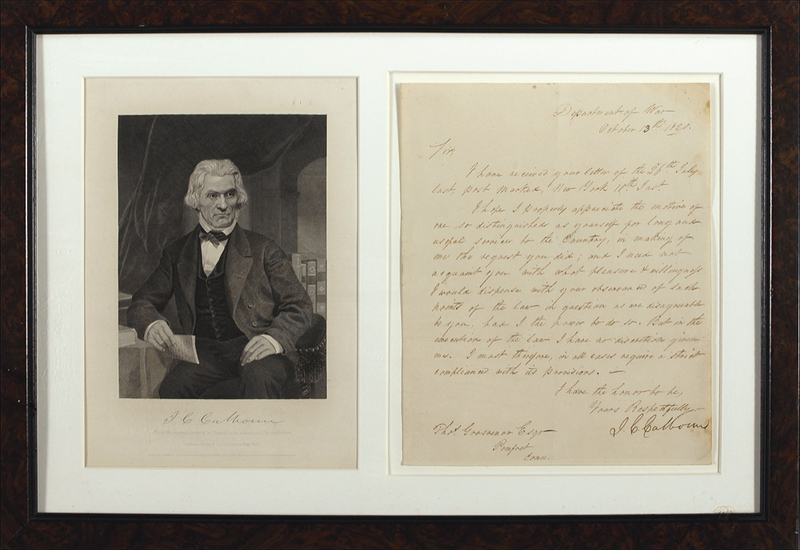 J. C. Calhoun
Department of War
October 13th 1820.
Sir,
I have received your letter of the 26th July
last, post marked, New York 10th Inst
I hope I properly appreciate the motive of
one so distinguished as yourself for long and
useful services to the Country, in making of
me the request you did; and I need not
acquaint you with what pleasure & willingness
I would dispense with your observance of such
points of the law in question as are disagreeable
to you, had I the power to do so. But in the
execution of the law I have no discretion given
me. I must therefore, in all cases require a strict
compliance with its provisions. —
I have the honor to be,
Yours Respectfully
J. C. Calhoun
Thos Grosvenor Esqr
Pomfret
Conn.